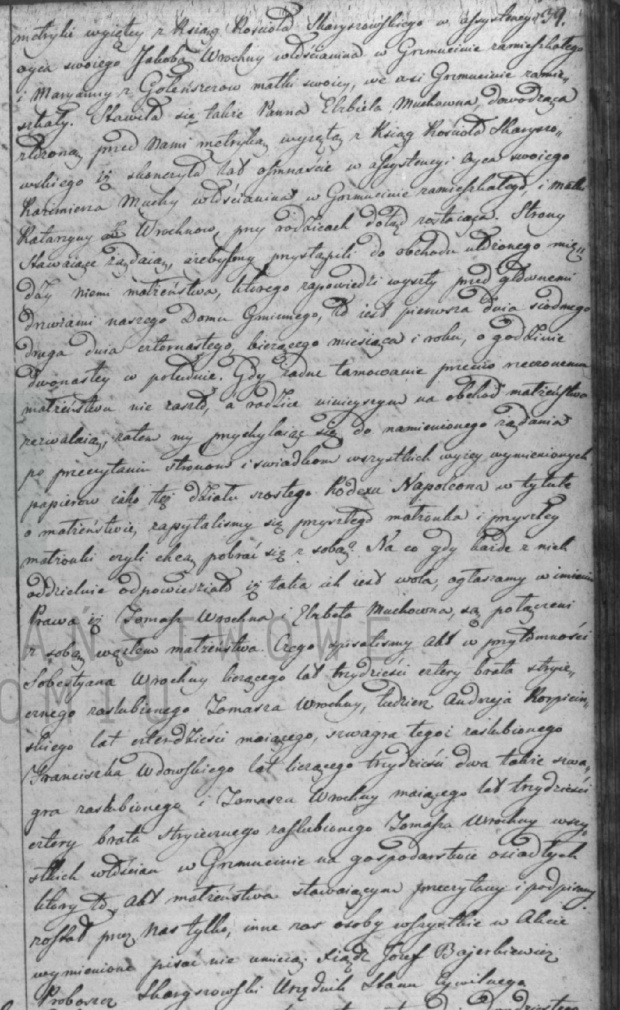 39.
metryki wyjętey z Ksiąg Kościoła Skaryszowskiego w assystencyi
oyca swoiego Jakoba Wrochny włościanina w Grzmucinie zamieszkałego
i Maryanny z matki swoiey, we wsi Grzmucinie zamie,
szkały. Stawiła się także Panna Elzbieta Muchowna, dowodząca
złożoną przed Nami metryką wyjętą z Ksiąg Kościoła Skaryszo,
wskiego iż skonczyła lat ośmnaście w assystencyi oyca swoiego
Kazimierza Muchy włościanina w Grzmucinie zamieszkałego, i matki
Katarzyny z Wrochnow, przy rodzicach dotąd zostaiąca. Strony
stawaiące żądaią, ażebyśmy przystąpili do obchodu ułożonego mię,
dzy niemi małżeństwa, ktorego zapowiedzi wyszły przed głownemi
drzwiami naszego Domu Gminnego, to iest pierwsza dnia siodmego
druga dnia czternastego, bieżącego miesiąca i roku, o godzinie
dwunastey w południe. Gdy żadne tamowanie przeciw rzeczonemu
małżeństwu nie zaszło, a rodzice ninieyszym na obchod małżeństwa
zezwalaią, zatem my przychylaiąc się do namienionego żądania
po przeczytaniu stronom i świadkom wszystkich wyżey wymienionych
papierow iako też działu szostego Kodexu Napoleona w tytule
o małżeństwie, zapytaliśmy się przyszłego małżonka i przyszłey
małżonki czyli chcą pobrać się z sobą? Na co gdy każde z nich
oddzielnie odpowiedziało iż taka ich iest wola, ogłaszamy w imieniu
Prawa iż Tomasz Wrochna i Elzbieta Muchowna, są połączeni
z sobą węzłem małżeństwa. Czego spisaliśmy akt w przytomności
Sobestyana Wrochny liczącego lat trzydzieści cztery brata stryie,
cznego zaslubionego Tomasza Wrochny, tudzież Andrzeja
skiego lat czterdzieści maiącego, szwagra tegoż zaslubionego
Franciszka Wdowskiego lat liczącego trzydzieści dwa także szwa,
gra zaslubionego i Tomasza Wrochny maiącego lat trzydzieści
cztery brata stryiecznego zaslubionego Tomasza Wrochny wszy,
stkich włościan w Grzmucinie na gospodarstwie osiadłych
ktory to akt małżeństwa stawaiącym przeczytany i podpisany
został przez Nas tylko, inne zas osoby wszystkie w Akcie
wymienione pisać nie umieią. Xiądz Jozef Bajerkiewicz
Proboszcz Skaryszowski Urzędnik Stanu Cywilnego